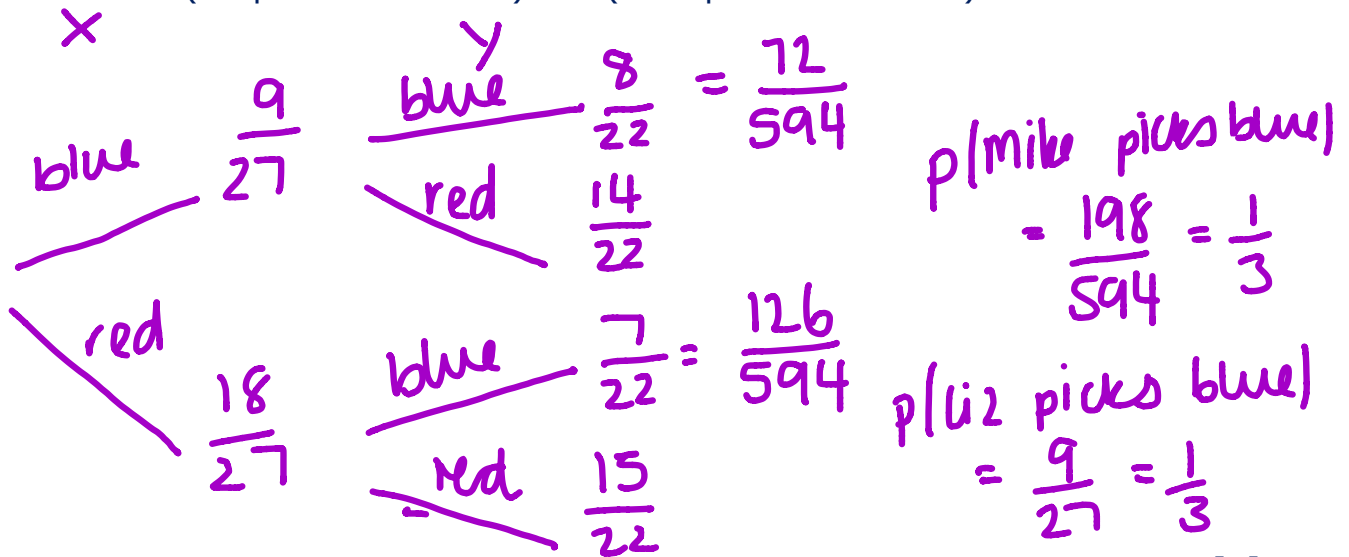 X
y
blue 9/27
blue 8/22 = 72/594
red 14/22
red 18/27
blue 7/22 = 126/594
red 15/22
p(mike picks blue)
= 198/594 = 1/3
p(liz picks blue)
= 9/27 = 1/3